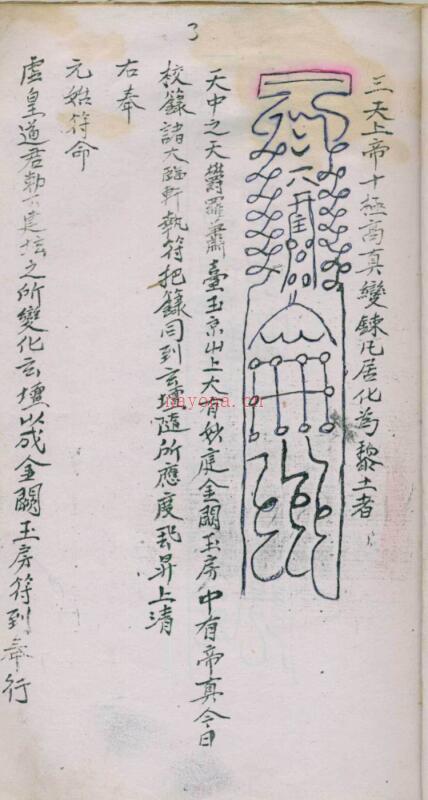 三天上帝十極高真變鍊凡居化為黎土者
天中之天欝羅蕭臺玉京山上大有妙庭金闕玉房中有帝真今日
校籙諸大臨軒執符把籙同到玄壇隨所應度飛昇上清
右奉
元始符命
虛皇道君勅下建壇之所變化玄壇以成金闕玉房符到奉行
3
nayona.cn